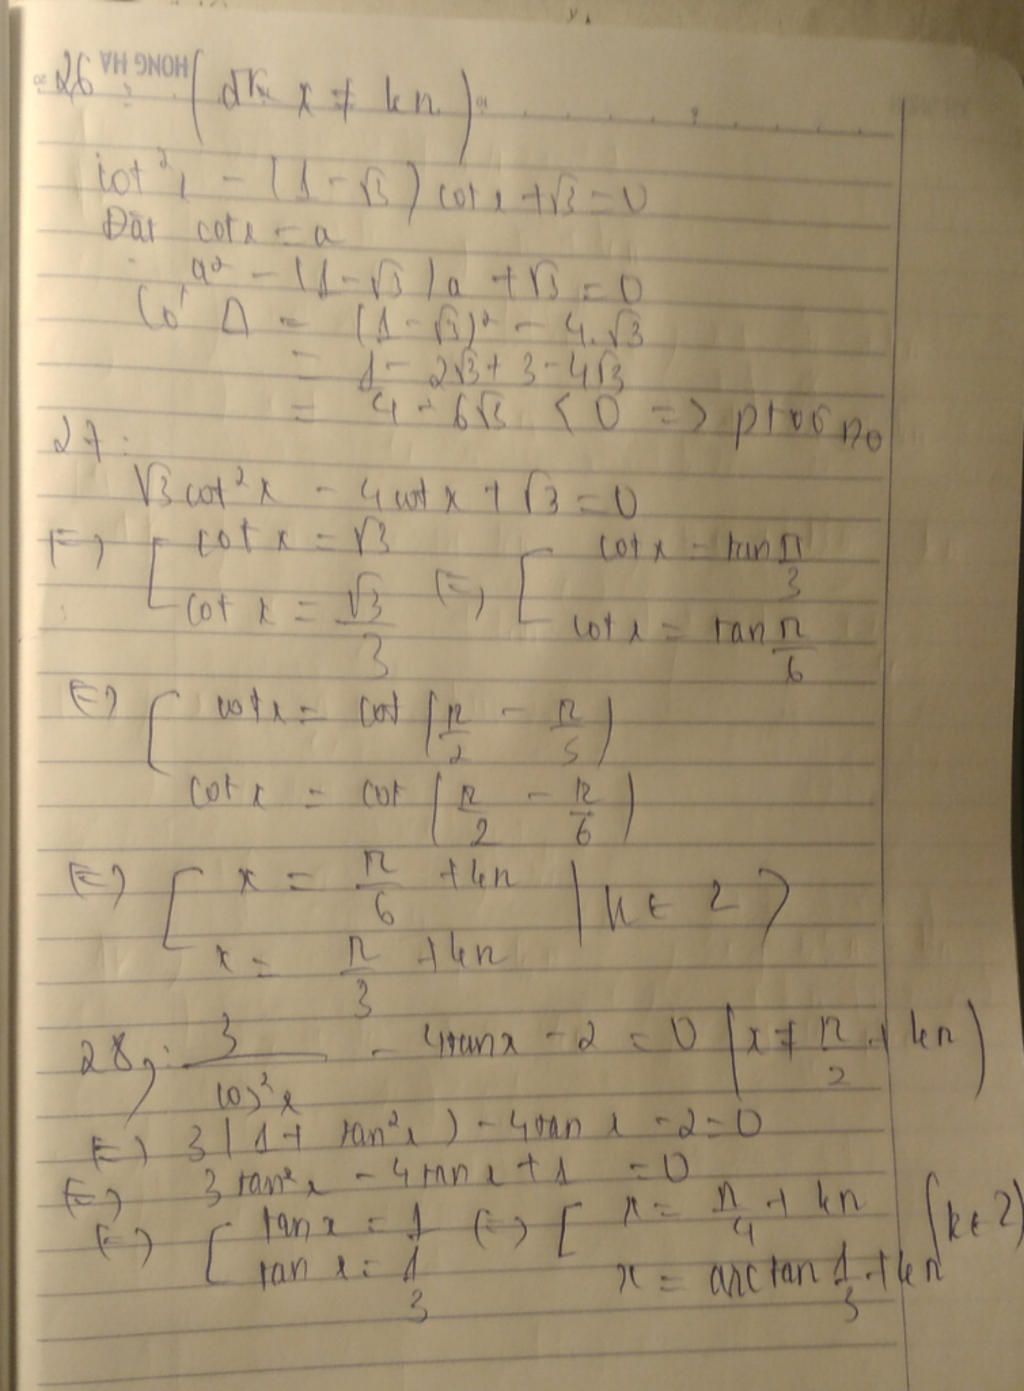 HONG HA
26 : (đk x ≠ kπ)
cot²x - (1 - √3) cot x + √3 = 0
Đặt cot x = a
a² - (1 - √3) a + √3 = 0
Có Δ = (1 - √3)² - 4.√3
= 1 - 2√3 + 3 - 4√3
= 4 - 6√3 < 0 =>
27 :
√3 cot²x - 4 cot x + √3 = 0
(=) [ cot x = √3 (=) [ cot x = tan π/3
cot x = √3/3 cot x = tan π/6
(=) [ cot x = cot (π/2 - π/3)
cot x = cot (π/2 - π/6)
(=) [ x = π/6 + kπ (k ∈ Z)
x = π/3 + kπ
28, : 3/cos²x - 4tan x - 2 = 0 (x ≠ π/2 + kπ)
(=) 3(1 + tan²x) - 4tan x - 2 = 0
(=) 3 tan²x - 4 tan x + 1 = 0
(=) [ tan x = 1 (=) [ x = π/4 + kπ (k ∈ Z)
tan x = 1/3 x = arctan 1/3 + kπ